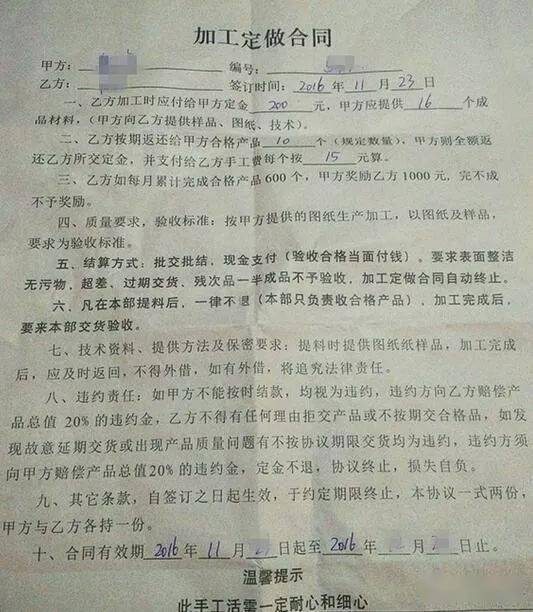 加工定做合同
甲方： 编号：
乙方： 签订时间：2016 年 11 月 23 日
一、乙方加工时应付给甲方定金 200 元，甲方应提供 16 个成
品材料，（甲方向乙方提供样品、图纸、技术）。
二、乙方按期返还给甲方合格产品 10 个（规定数量），甲方则全额返
还乙方所交定金，并支付给乙方手工费每个按 15 元算。
三、乙方如每月累计完成合格产品600个，甲方奖励乙方1000元，完不成
不予奖励。
四、质量要求，验收标准：按甲方提供的图纸生产加工，以图纸及样品，
要求为验收标准。
五、结算方式：批交批结，现金支付（验收合格当面付钱）。要求表面整洁
无污物，超差、过期交货、残次品一半成品不予验收，加工定做合同自动终止。
六、凡在本部提料后，一律不退（本部只负责收合格产品），加工完成后，
要来本部交货验收。
七、技术资料、提供方法及保密要求：提料时提供图纸纸样品，加工完成
后，应及时返回，不得外借，如有外借，将追究法律责任。
八、违约责任：如甲方不能按时结款，均视为违约，违约方向乙方赔偿产
品总值 20%的违约金，乙方不得有任何理由拒交产品或不按期交合格品，如发
现故意延期交货或出现产品质量问题有不按协议期限交货均为违约，违约方须
向甲方赔偿产品总值20%的违约金，定金不退，协议终止，损失自负。
九、其它条款，自签订之日起生效，于约定期限终止，本协议一式两份，
甲方与乙方各持一份。
十、合同有效期 2016 年 11 月 日起至 2016 年 月 日止。
温馨提示
此手工活需一定耐心和细心